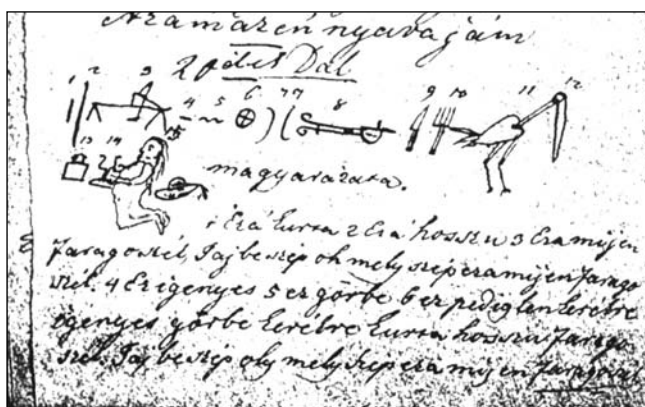 nyavajám
2 Dal
1 2 3 4 5 6 7 7 8 9 10 11 12
13 14 15
magyarázata.
1 Ezá kurta 2 Ezá hosszu 3 Ezámijen
faragoszél, Jaj beszép oh mely szép ezamijen farago
szél. 4 Ez igenyes 5 ez görbe 6 ez pediglen kerekre
igenyes görbe kerekre kurta hosszu farago
szél. Jaj beszép oly mely szép ezamijen faragoszél